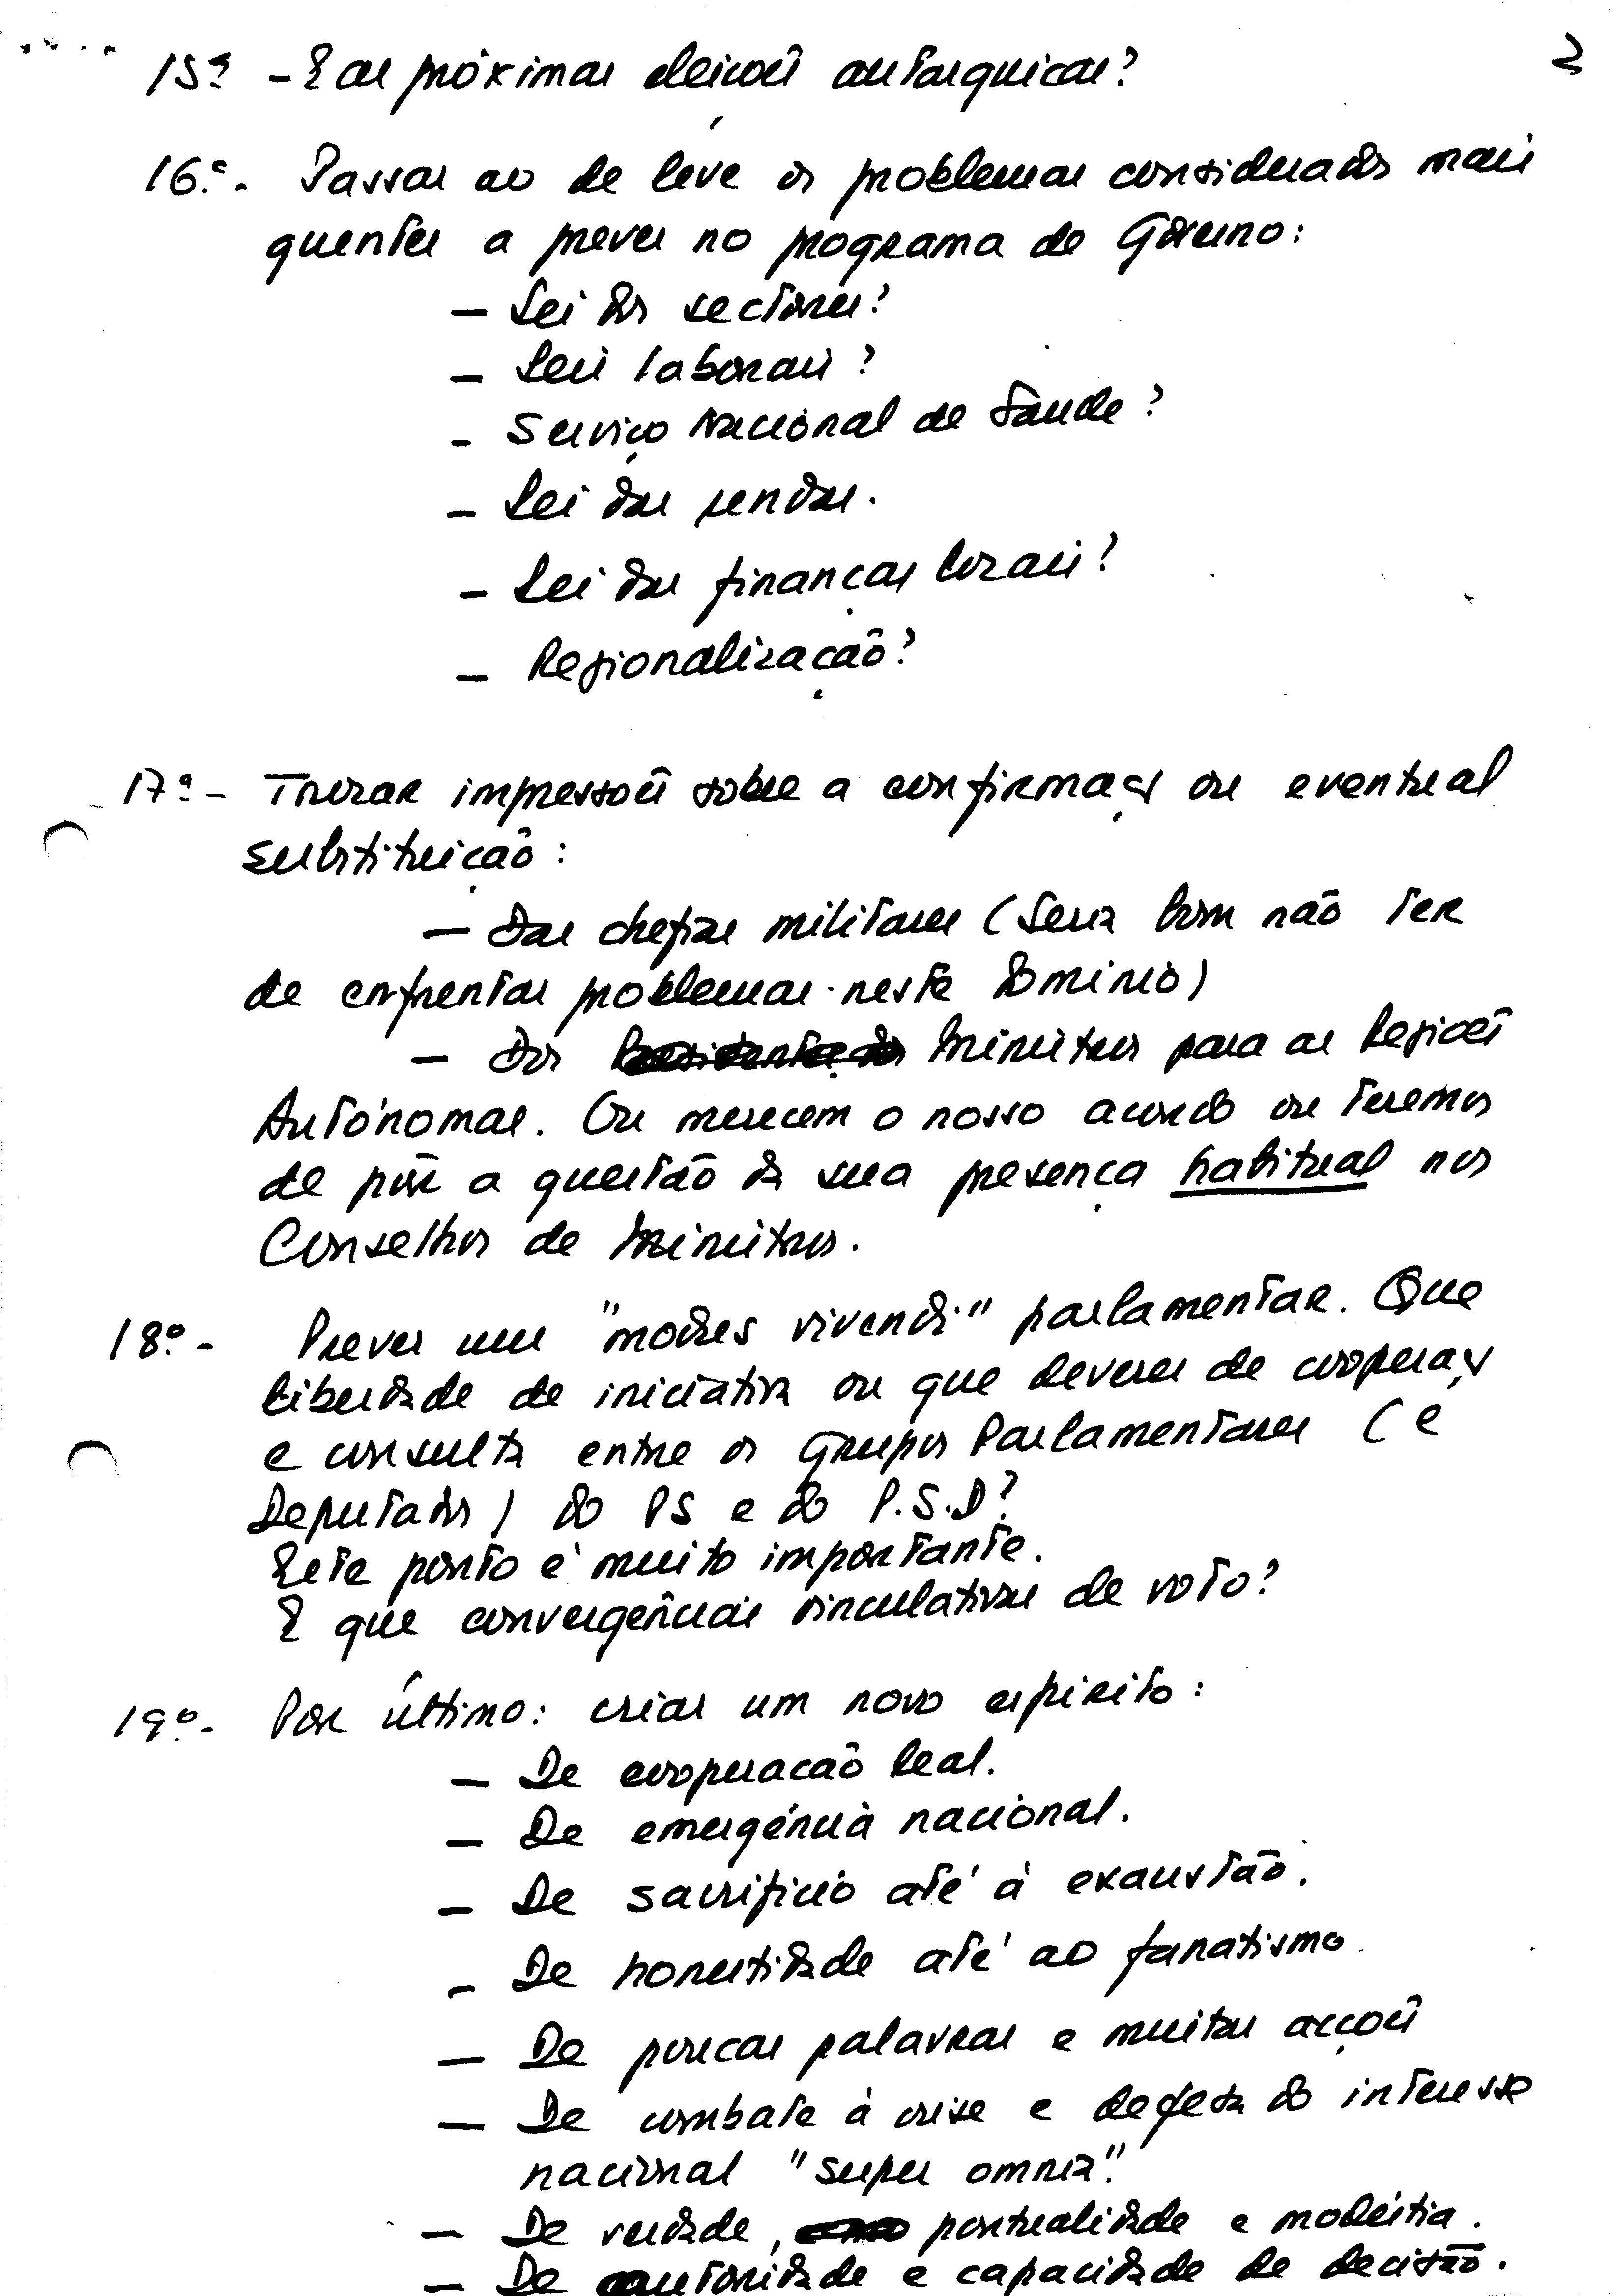 2
15ª - E as próximas eleições autarquicas?
16.º - Passar ao de leve os problemas considerados mais
quentes a prever no programa de Govêrno:
- Lei dos sectores?
- Leis laborais?
- Serviço Nacional de Saude?
- Lei das rendas.
- Lei das finanças locais?
- Regionalização?
17º - Trocar impressões sobre a confirmação ou eventual
substituição:
- Das chefias militares (Seria bom não ter
de enfrentar problemas neste dominio)
- Dos Ministros para as Regiões
Autónomas. Ou merecem o nosso acordo ou teremos
de pôr a questão da sua presença habitual nos
Conselhos de Ministros.
18º - Prever um "modus vivendi" parlamentar. Que
liberdade de iniciativa ou que deveres de cooperação
e consulta entre os Grupos Parlamentares (e
Deputados) do PS e do P.S.D?
Este ponto é muito importante.
E que convergências vinculativas de voto?
19º - Por último: criar um novo espirito:
- De cooperação leal.
- De emergência nacional.
- De sacrificio até à exaustão.
- De honestidade até ao fanatismo
- De poucas palavras e muitas acções
- De combate à crise e defesa do interesse
nacional "super omnia".
- De verdade, pontualidade e modéstia.
- De autoridade e capacidade de decisão.